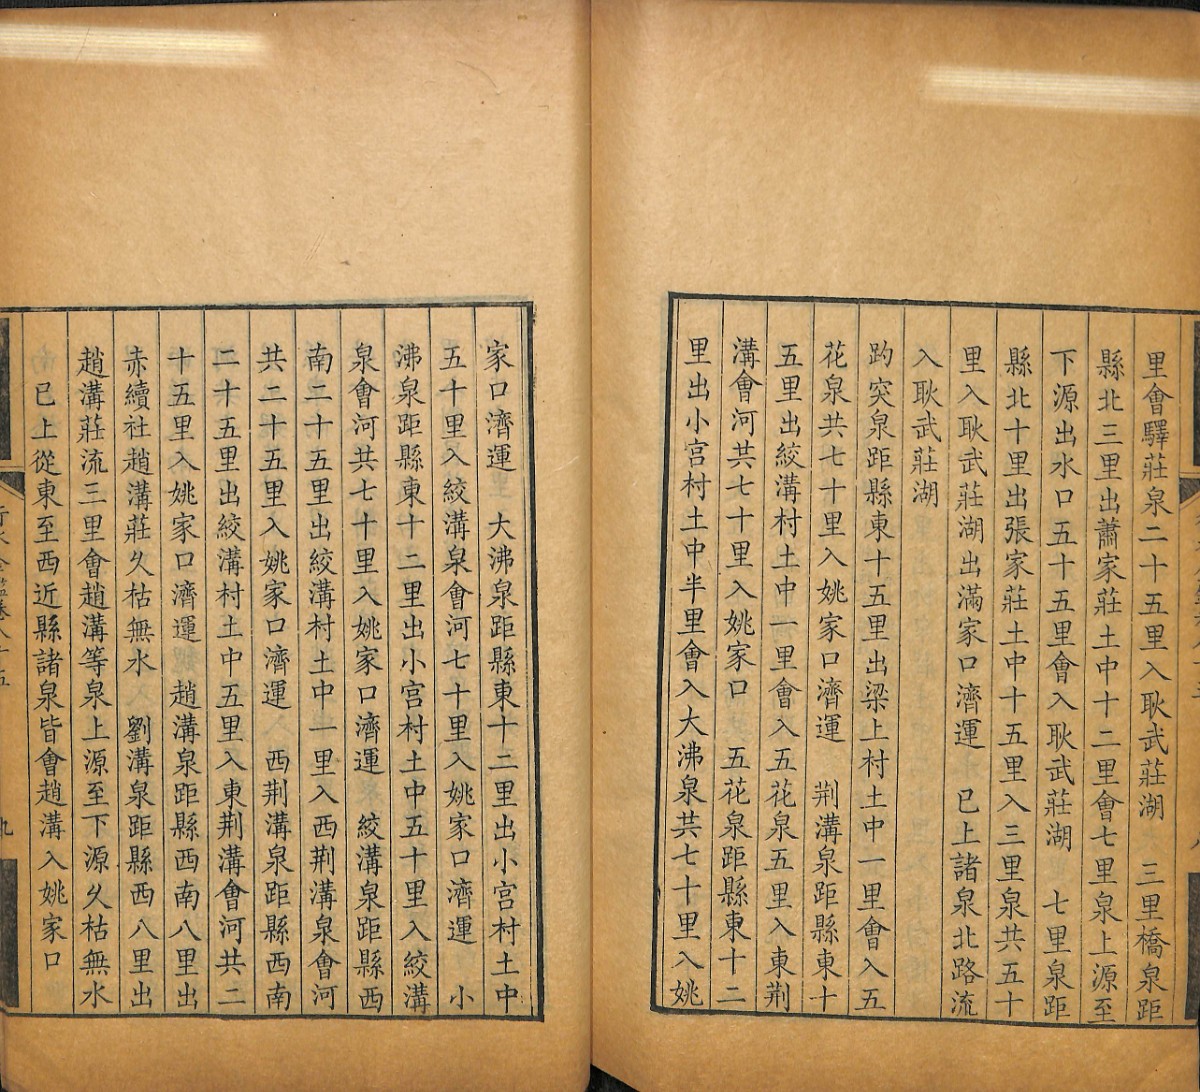 里會驛莊泉二十五里入耿武莊湖　三里橋泉距
縣北三里出蕭家莊土中十二里會七里泉上源至
下源出水口五十五里會入耿武莊湖　七里泉距
縣北十里出張家莊土中十五里入三里泉共五十
里入耿武莊湖出滿家口濟運　已上諸泉北路流
入耿武莊湖
趵突泉距縣東十五里出梁上村土中一里會入五
花泉共七十里入姚家口濟運　荆溝泉距縣東十
五里出絞溝村土中一里會入五花泉五里入東荆
溝會河共七十里入姚家口　五花泉距縣東十二
里出小宫村土中半里會入大沸泉共七十里入姚
家口濟運　大沸泉距縣東十二里出小宫村土中
五十里入絞溝泉會河七十里入姚家口濟運　小
沸泉距縣東十二里出小宫村土中五十里入絞溝
泉會河共七十里入姚家口濟運　絞溝泉距縣西
南二十五里出絞溝村土中一里入西荆溝泉會河
共二十五里入姚家口濟運　西荆溝泉距縣西南
二十五里出絞溝村土中五里入東荆溝會河共二
十五里入姚家口濟運　趙溝泉距縣西南八里出
赤續社趙溝莊久枯無水　劉溝泉距縣西八里出
趙溝莊流三里會趙溝等泉上源至下源久枯無水
已上從東至西近縣諸泉皆會趙溝入姚家口
行水金鑑卷八十五
九